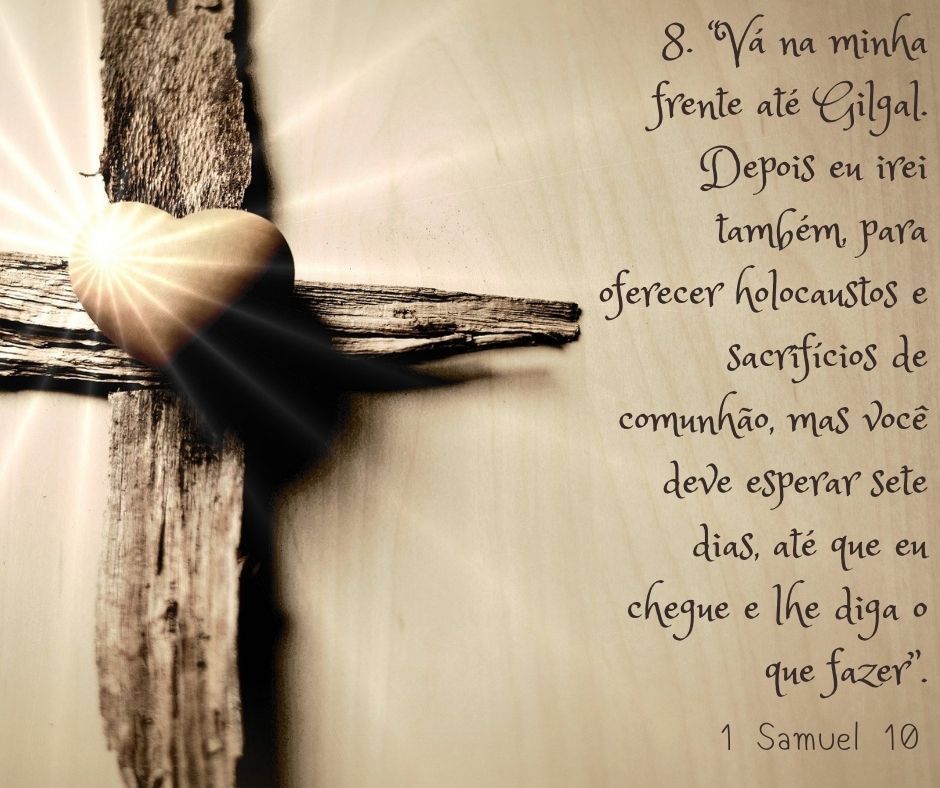 8. “Vá na minha
frente até Gilgal.
Depois eu irei
também, para
oferecer holocaustos e
sacrifícios de
comunhão, mas você
deve esperar sete
dias, até que eu
chegue e lhe diga o
que fazer”.
1 Samuel 10